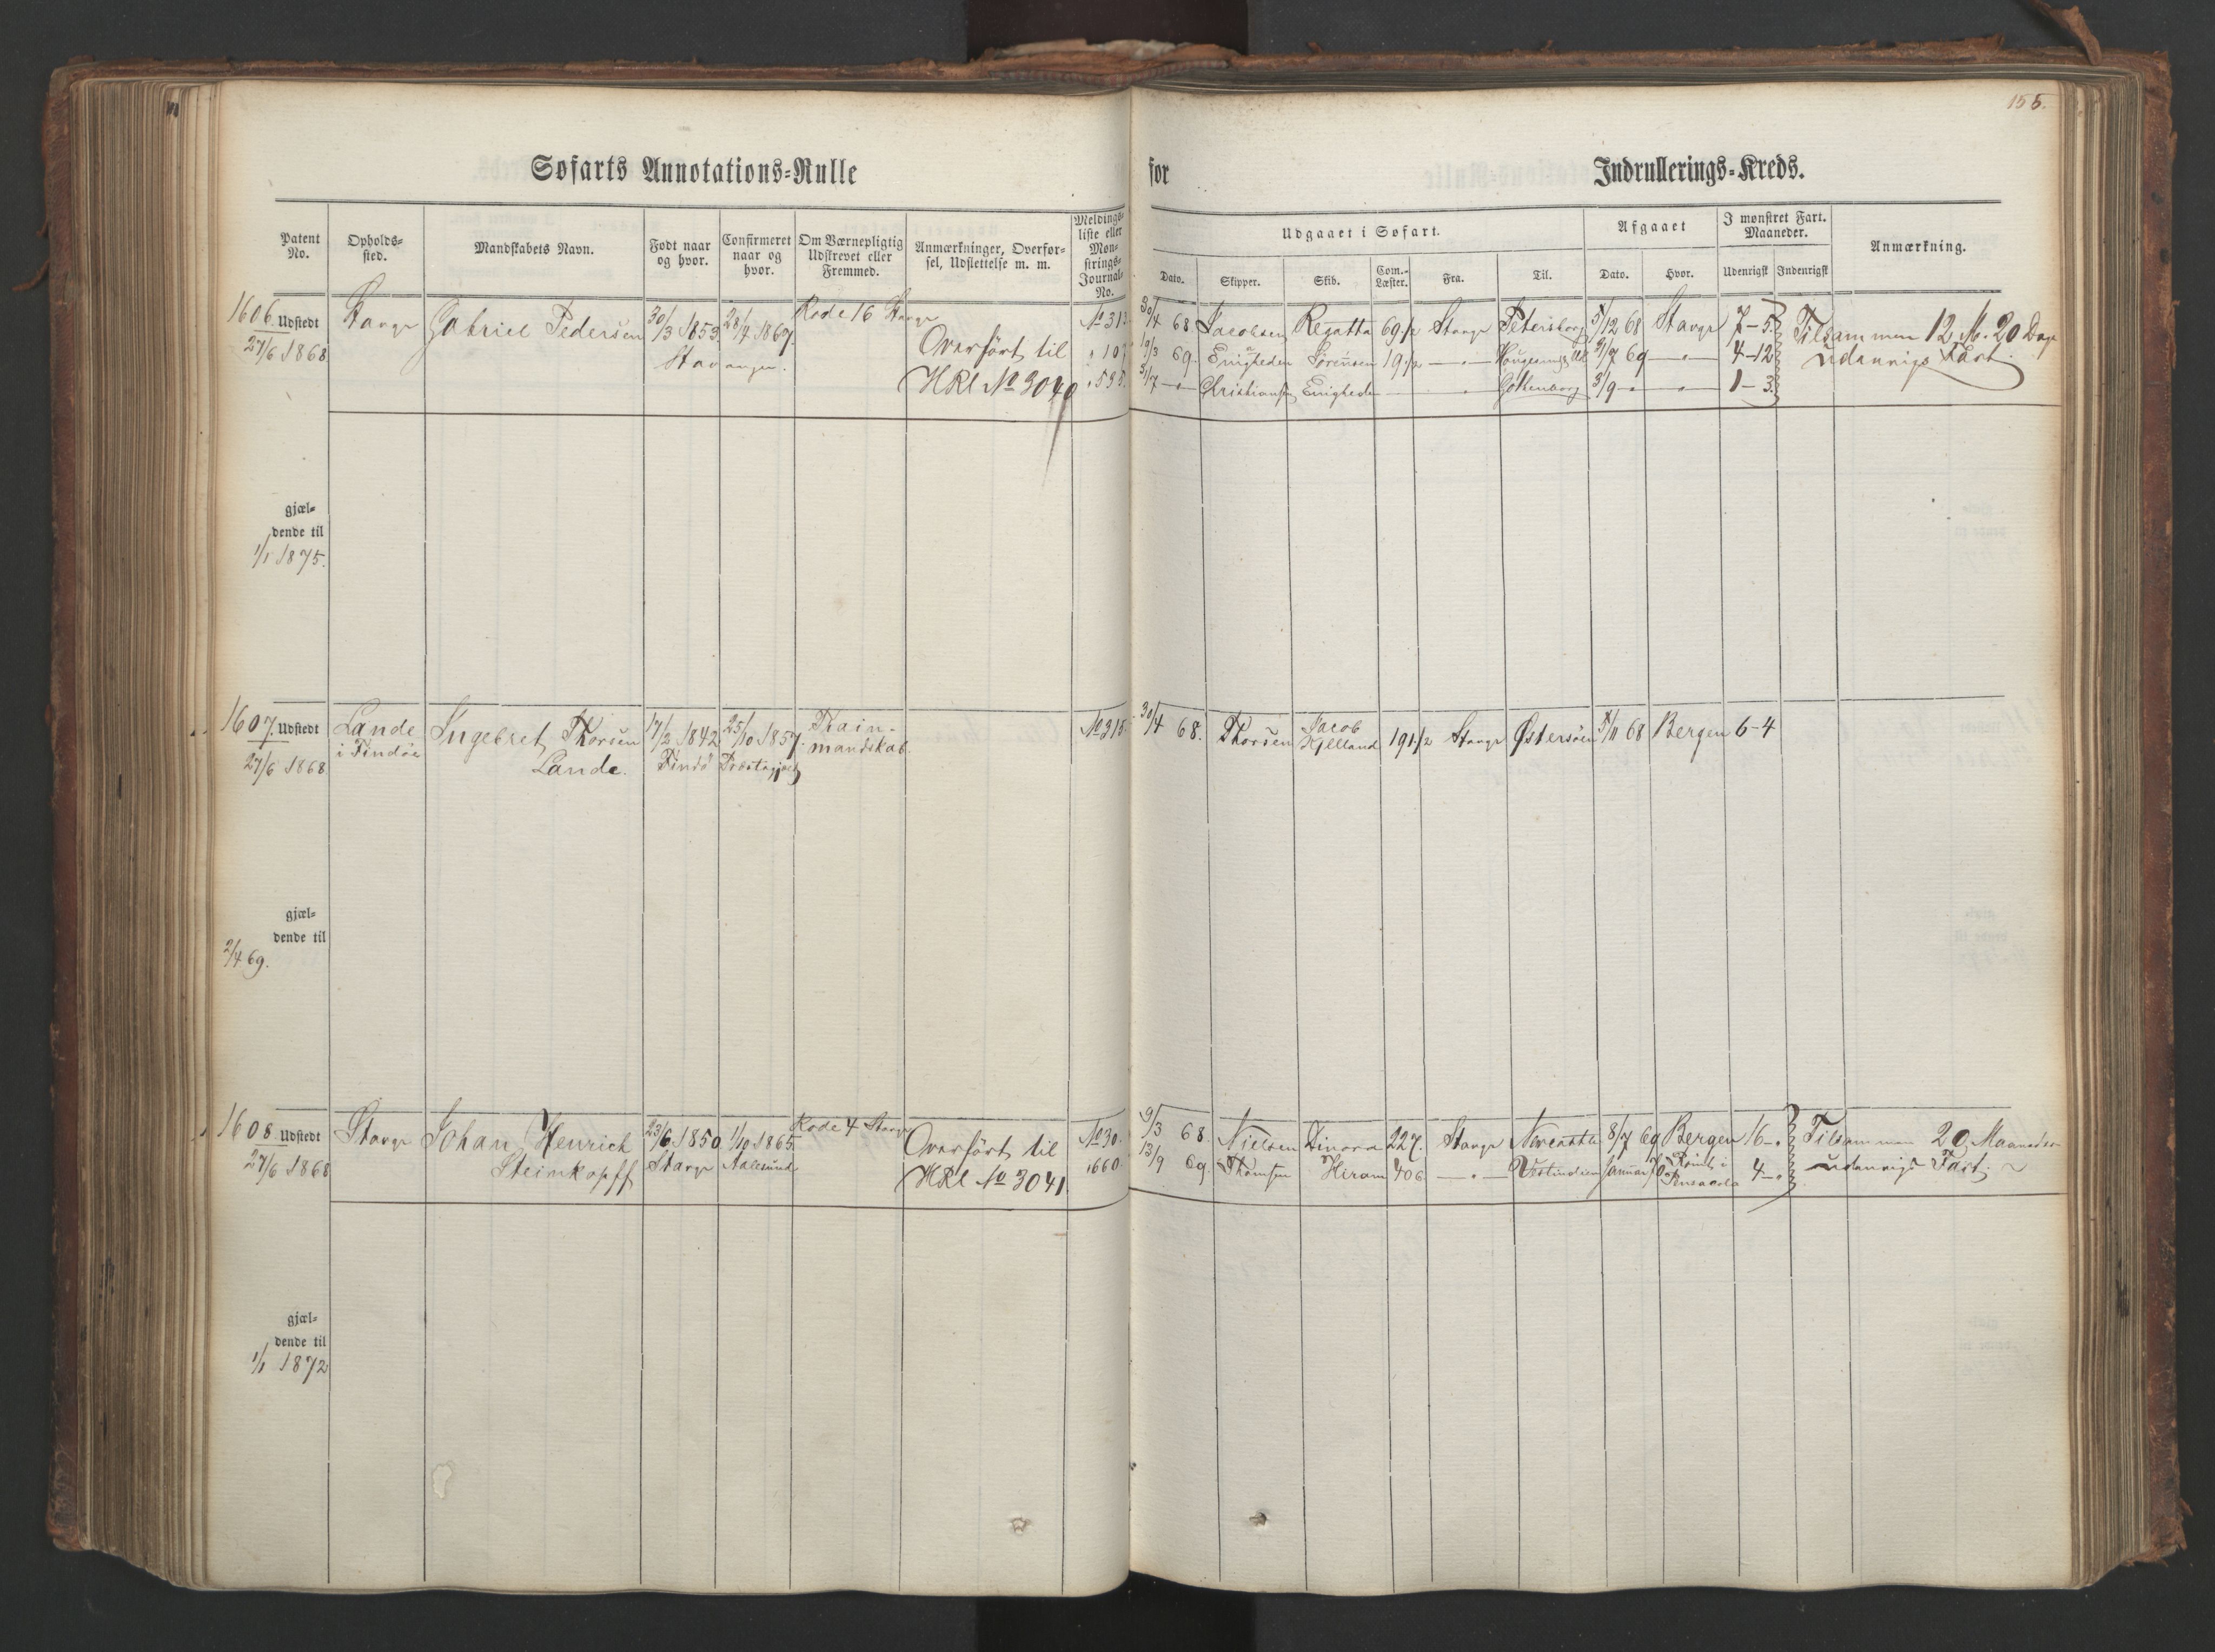 155.
Søfarts Annotations-Rulle for Indrullerings-Kreds.
Patent No.
Opholds-sted.
Mandskabets Navn.
Født naar og hvor.
Confirmeret naar og hvor.
Om Værnepligtig Udskrevet eller Fremmed.
Anmærkninger, Overfør-sel, Udslettelse m. m.
Meldings-liste eller Møn-strings-Journal-No.
Udgaaet i Søfart.
Dato.
Skipper.
Skib.
Com.-Læster.
Fra.
Til.
Afgaaet
Dato.
Hvor.
I mønstret Fart. Maaneder.
Udenrigsk
Indenrigsk
Anmærkning.
1606. Udstedt 27/6 1868
Stavgr
Gabriel Pedersen
30/3 1853. Stavanger.
28/4 1867.
Rode 16 Stavgr
Overført til
HRl No 3040
No 313
" 107
" 595.
30/4 68 Jacobsen Regatta 69 1/2 Stavgr Petersborg 5/12 68 Stavgr 7-5.
9/3 69. Enigheden Sørensen 19 1/2 — " — 9/7 69 — " — 4-12
31/7 — " — Christiansen Enigheden Gothenborg 3/9 — " — 1-3.
Tilsammen 12 M. 20 Dage
udenrigs Fart.
gjæl-
dende til
1/1 1875.
1607. Udstedt 27/6 1868
Lande
i Findøe
Ingebret Thorsen
Lande.
17/2 1842 Findø
25/10 1857. Præstegjæld
Train-
mandskab.
No 315.
30/4 68. Thorsen Jacob Kjelland 191 1/2 Stavgr Østersøen 5/11 68 Bergen 6-4
gjæl-
dende til
2/4 69.
1608. Udstedt 27/6 1868
Stavgr
Johan Henrich
Steinkopff
23/6 1850. Stavgr
1/10 1865. Aalesund
Rode 4 Stavgr
Overført til
HRl No 3041.
No 30.
" 660.
9/3 68. Nielsen Dinora 227. Stavgr Newcastle 8/7 69 Bergen 16-"
13/9 69. Thomsen Hiram 406 — " — Vestindien Januar 70 Rømt i Pensacola 4-"
Tilsammen 20 Maaneder
udenrigs Fart.
gjæl-
dende til
1/1 1872